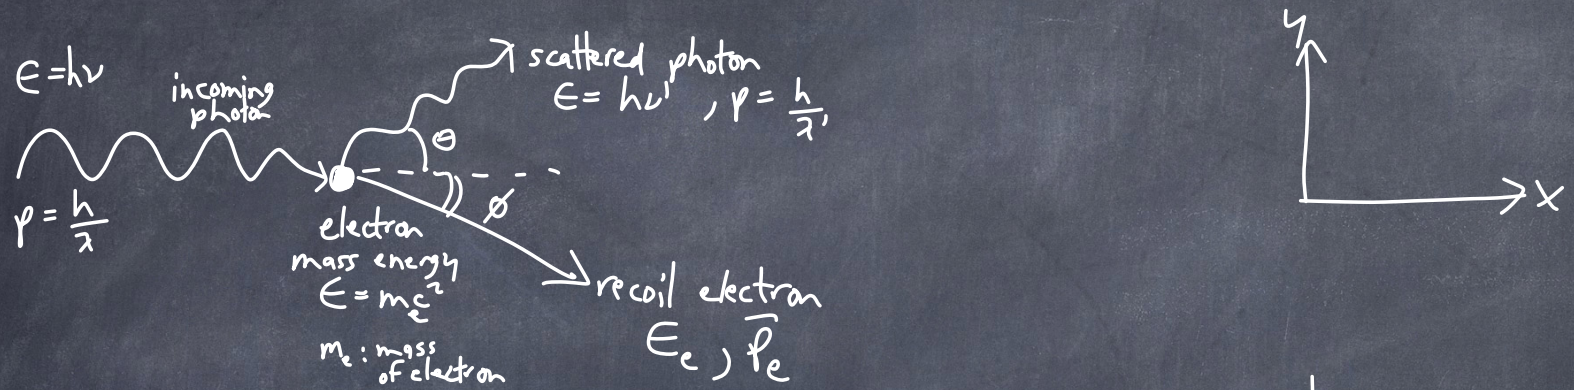 ϵ = hν
incoming
photon
p = h/λ
scattered photon
ϵ = hν' , p = h/λ'
θ
ϕ
electron
mass energy
ϵ = mₑc²
mₑ : mass
of electron
recoil electron
ϵₑ , p̅ₑ
y
x